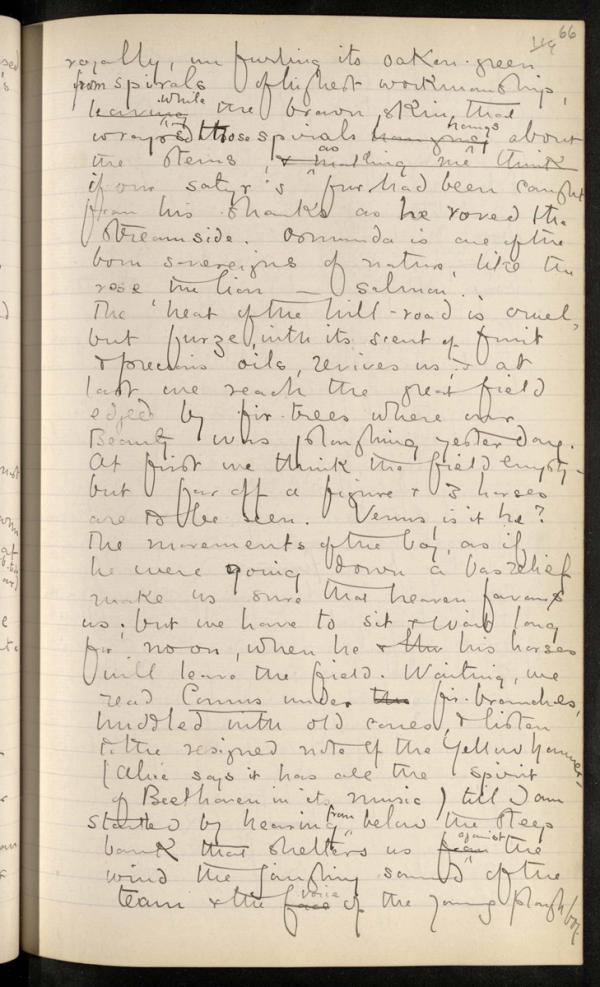 66
royally, unfurling its oaken-green
from spirals of highest workmanship,
leaving while the brown skin that
wrapped those spirals hangs about
the stems, & making me think as
if our satyr's fur had been caught
from his shanks as he roved the
streamside. Osmunda is one of the
born sovereigns of nature, like the
rose the lion – salmon.
The heat of the hill-road is cruel,
but furze, with its scent of fruit
& precious oils, revives us; & at
last we reach the great field
edged by fir-trees where our
Beauty was ploughing yesterday.
At first we think the field empty –
but far off a figure & 3 horses
are to be seen. Venus, is it he?
The movements of the boy, as if
he were going down a bas relief
make us sure that heaven favours
us; but we have to sit & wait long
for noon, when he & the his horses
will leave the field. Waiting, we
read Comus under the fir-branches,
huddled with old cones, & listen
to the resigned note of the Yellow hammer
(Alice says it has all the spirit
of Beethoven in its music) till I am
startled by hearing from below the steep
bank that shelters us from against the
wind the jangling sound of the
team & the face voice of the young plough boy.